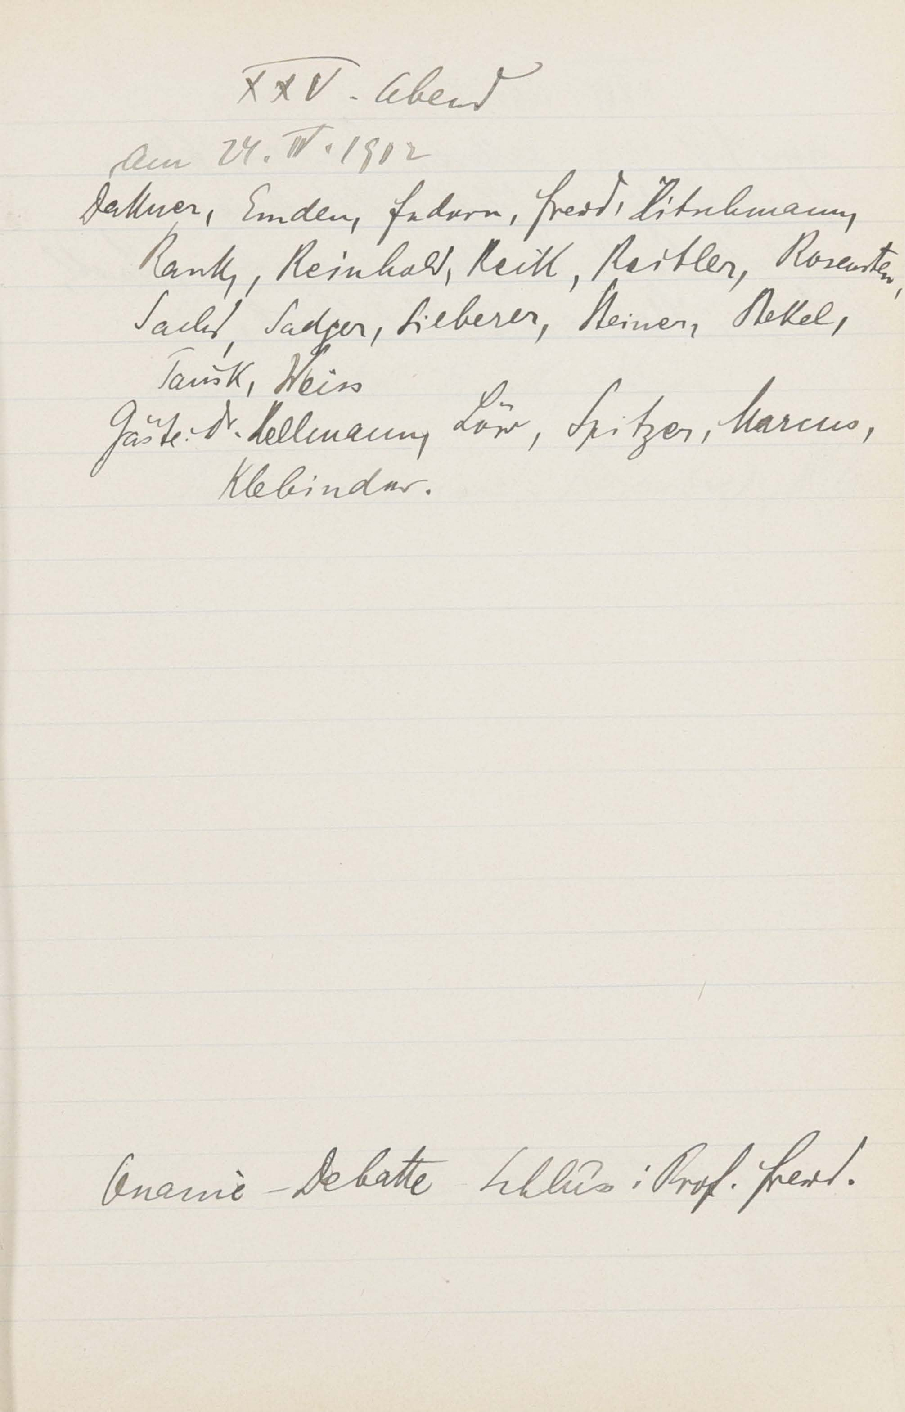 XXV. Abend
Am 24. IV. 1912
Dattner, Emden, Federn, Freud, Hitschmann,
Rank, Reinhold, Reik, Reitler, Rosenstein,
Sachs, Sadger, Silberer, Steiner, Stekel,
Tausk, Weiss
Gäste: Dr. Kellmann, Löw, Spitzer, Marcus,
Klebinder.
Onanie-Debatte Schluss: Prof. Freud.